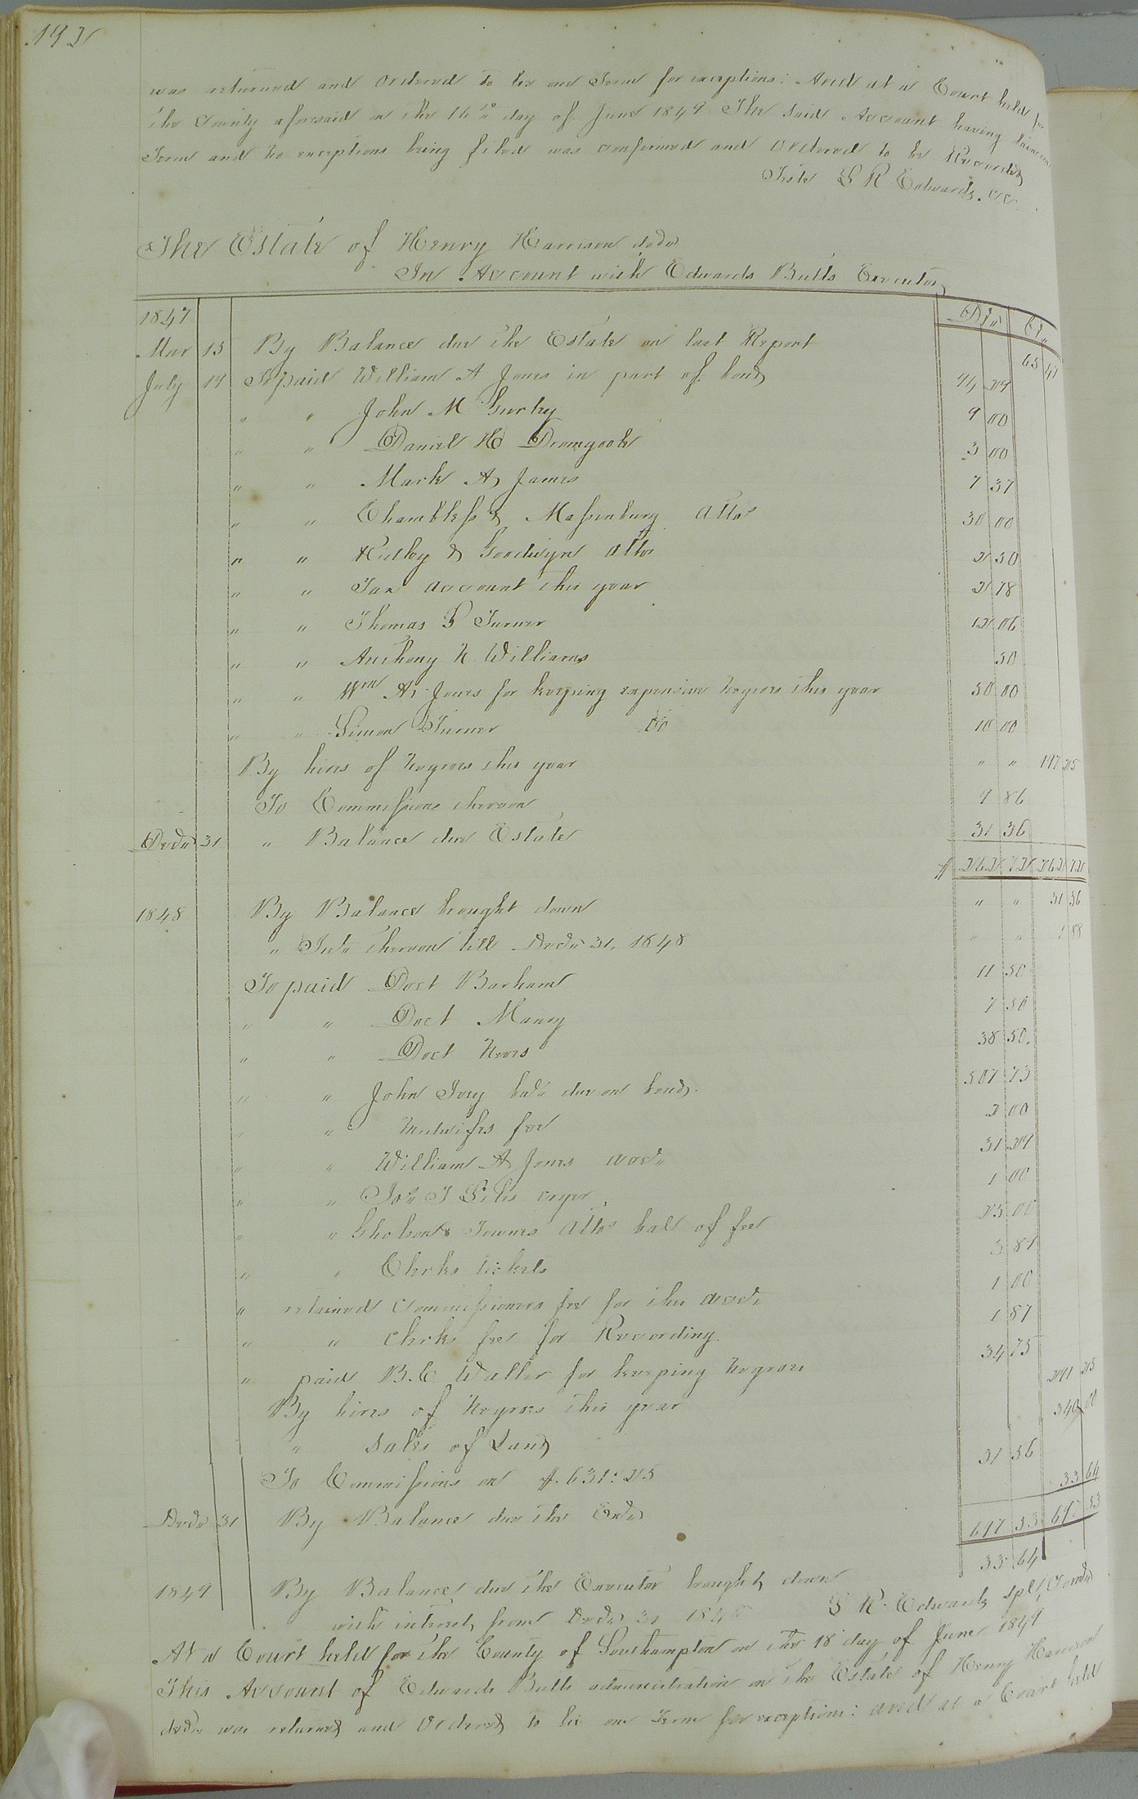 192
was returned and ordered to lie one Term for exceptions: And at a Court held for
the County aforesaid on the 16th day of June 1849 The said Account having lain one
Term and no exceptions being filed was confirmed and ordered to be Recorded
Teste L R Edwards. CC
The Estate of Henry Harrison decd
In Account with Edwards Butts Executor
Dr Cr
1847
Mar 13 By Balance due the Estate on last Report 65 47
July 14 To paid William A Jones in part of bond 94 29
" " John M Gurley 9 00
" " Daniel H Dromgoole 3 00
" " Mark A James 7 37
" " Chambliss & Massenburg Attos 30 00
" " Ridley & Goodwyn Attos 2 50
" " Tax account this year 2 78
" " Thomas P Turner 12 06
" " Anthony N Williams 50
" " Wm A Jones for keeping expensive negroes this year 50 00
" " Simon Turner Do 10 00
By hires of negroes this year " " 197 25
To Commissions thereon 9 86
Decr 31 " Balance due Estate 31 36
$ 262 72 262 72
1848 By Balance brought down " " 31 36
" Int. thereon till Decr 31, 1848 " " 1 88
To paid Doct Barham 11 50
" " Doct Maney 7 50
" " Doct 38 50
" " John Ivey bal. due on bond 507 73
" " Midwifes fee 2 00
" " William A Jones acct. 31 29
" " Jas T 1 00
" " Gholson & Attos bal of fee 25 00
" " Clerks tickets 3 81
" retained Commissioners fee for this acct. 1 00
" " Clerks fee for Recording 1 87
" paid B. C Waller for keeping negroes 34 75
By hires of negroes this year 291 25
" Sales of Land 340 00
To Commissions on $631:25 31 56
Decr 31 By Balance due the Exor 33 64
697 53 697 53
1849 By Balance due the Executor brought down 33 64
with interest from Decr 31 1848 L R. Edwards spl Comr
At a Court held for the County of Southampton on the 18th day of June 1849
This Account of Edwards Butts administration on the Estate of Henry Harrison
decd was returned and Ordered to lie one Term for exceptions: and at a Court held